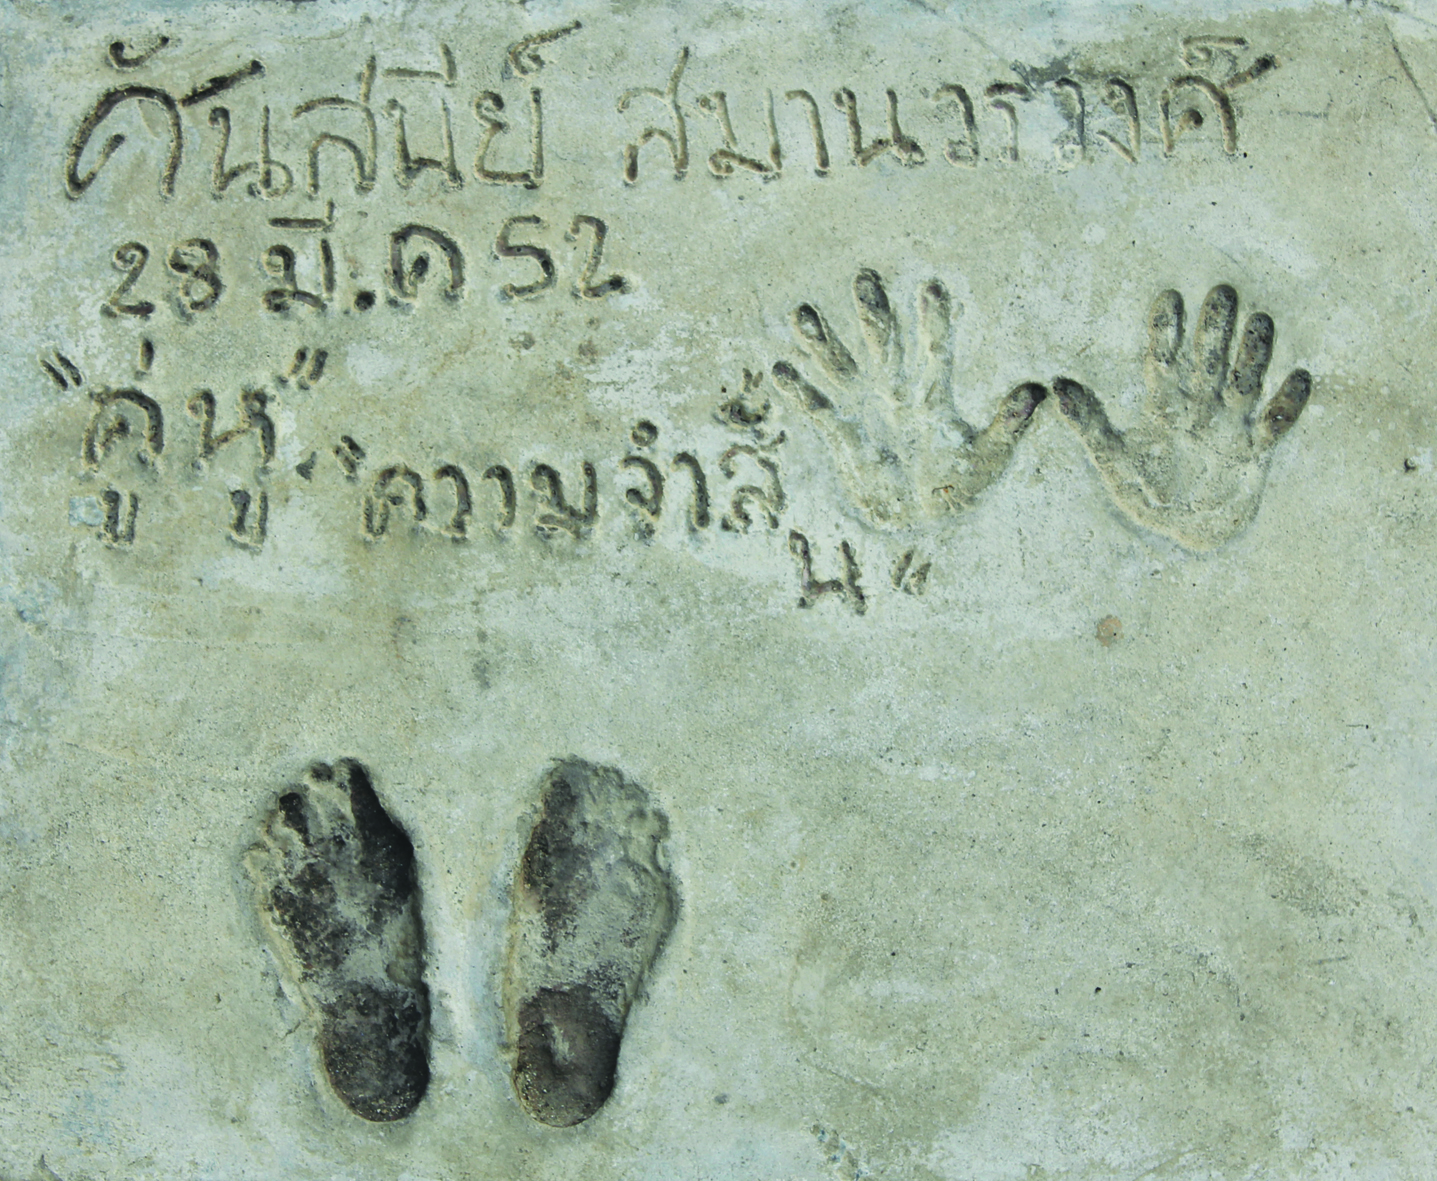 ศันสนีย์ สมานวรวงศ์
28 มี.ค 52
"คู่หู" "ความจำสั้
น"